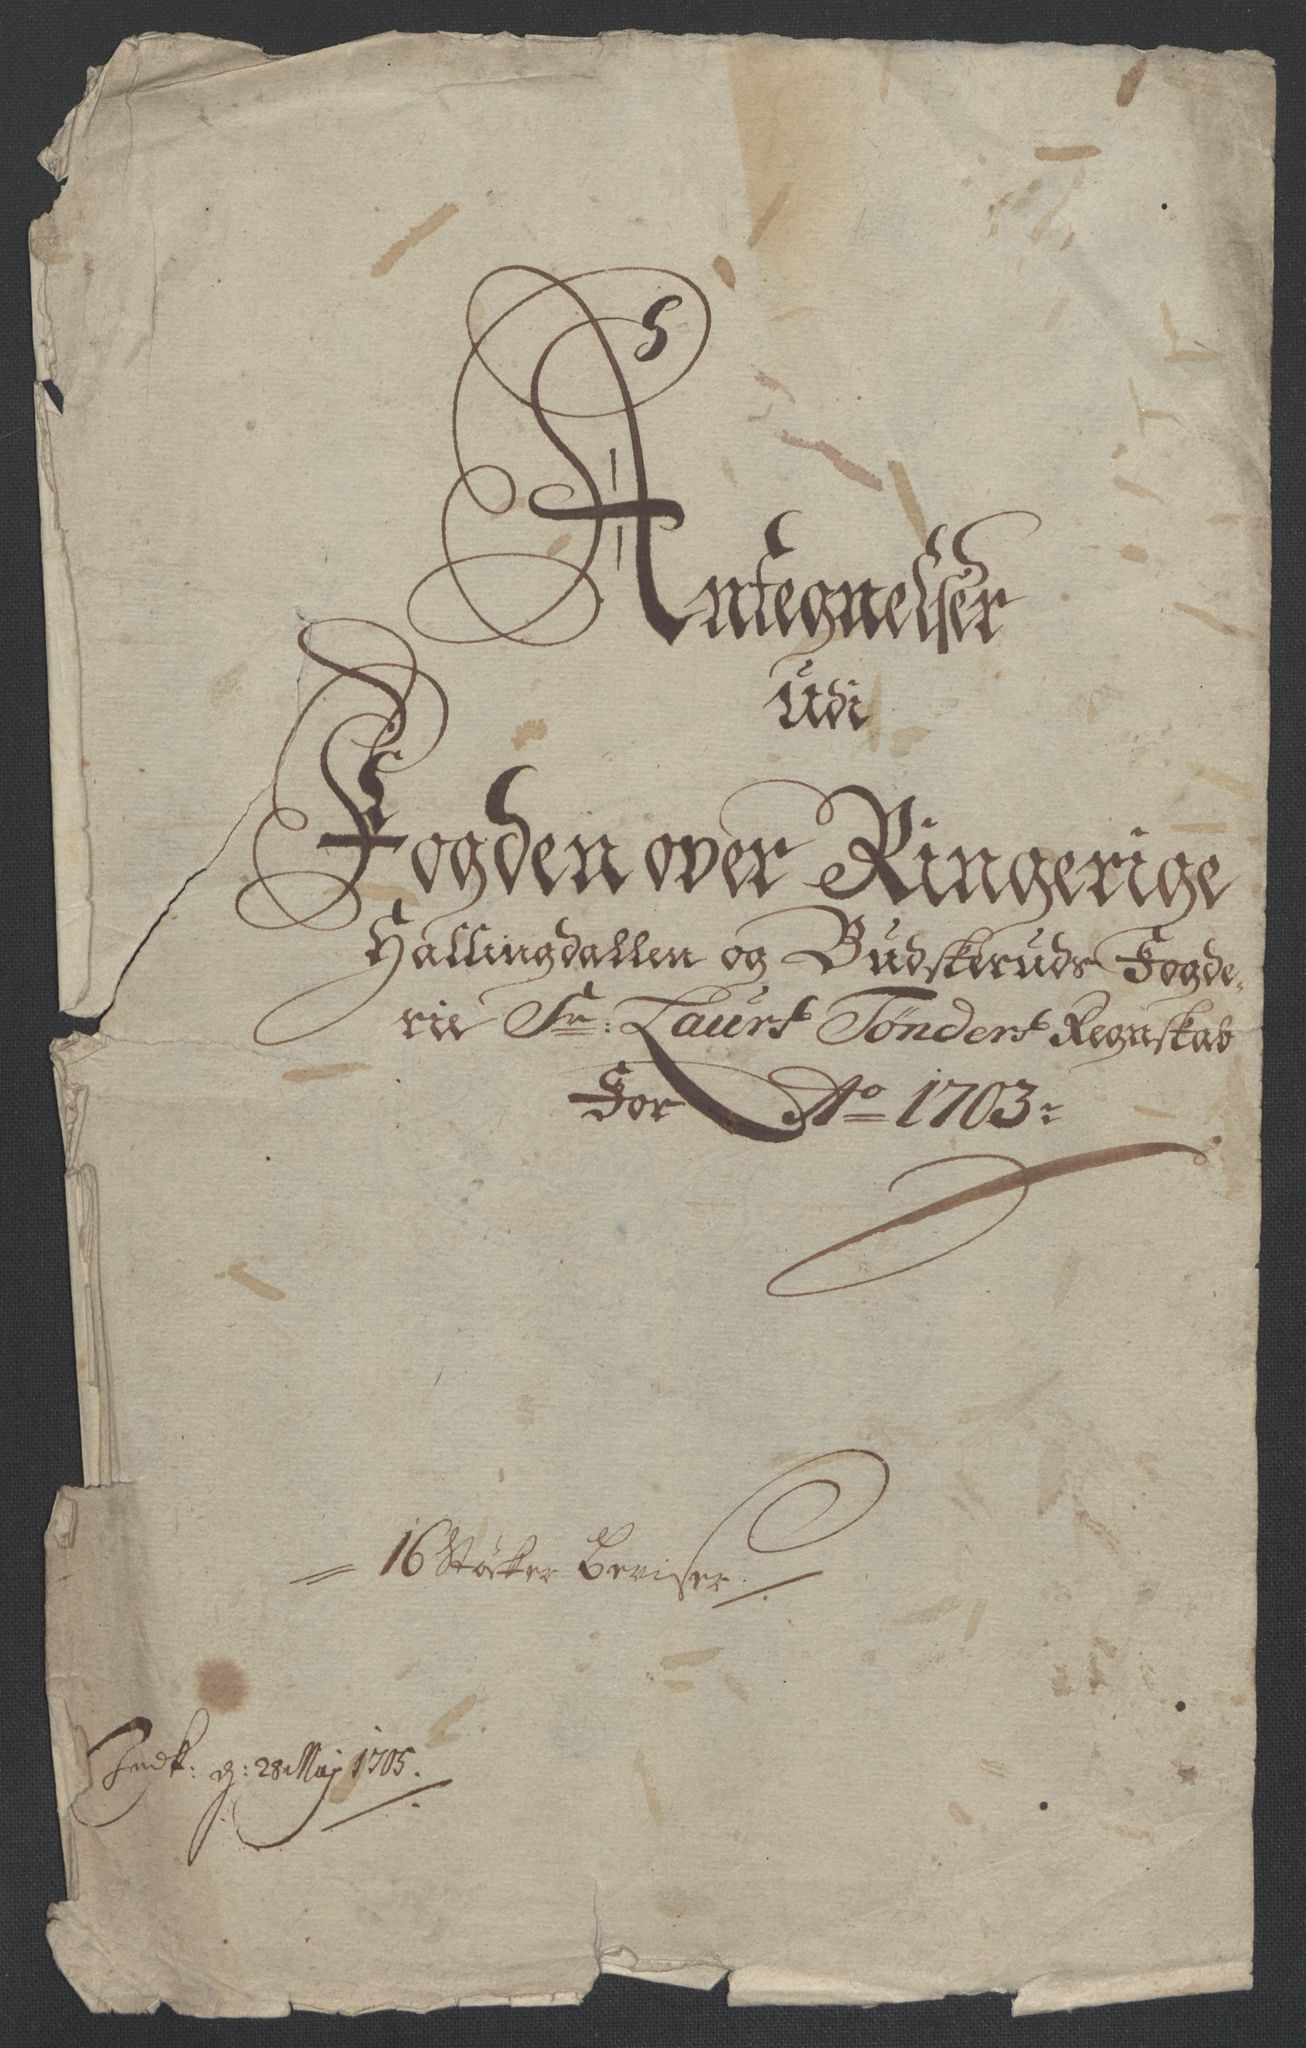 Antegnelser
Udi
Fogden over Ringerige
Hallingdallen og Budskeruds Fogde-
rie Sr: Laurs Tønders Regnskab
For Ao 1703:
16 Støcker Beviser.
Indk: d: 28 Maj 1705.